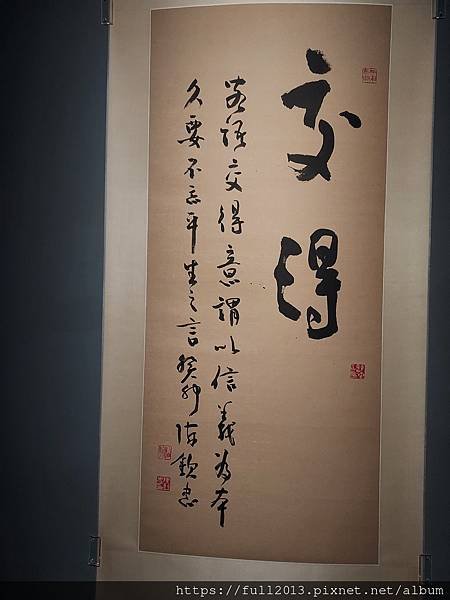 交得
岩頭交得意謂以信義為本
久要不忘平生之言癸卯陳欽忠
https://full2013.pixnet.net/album